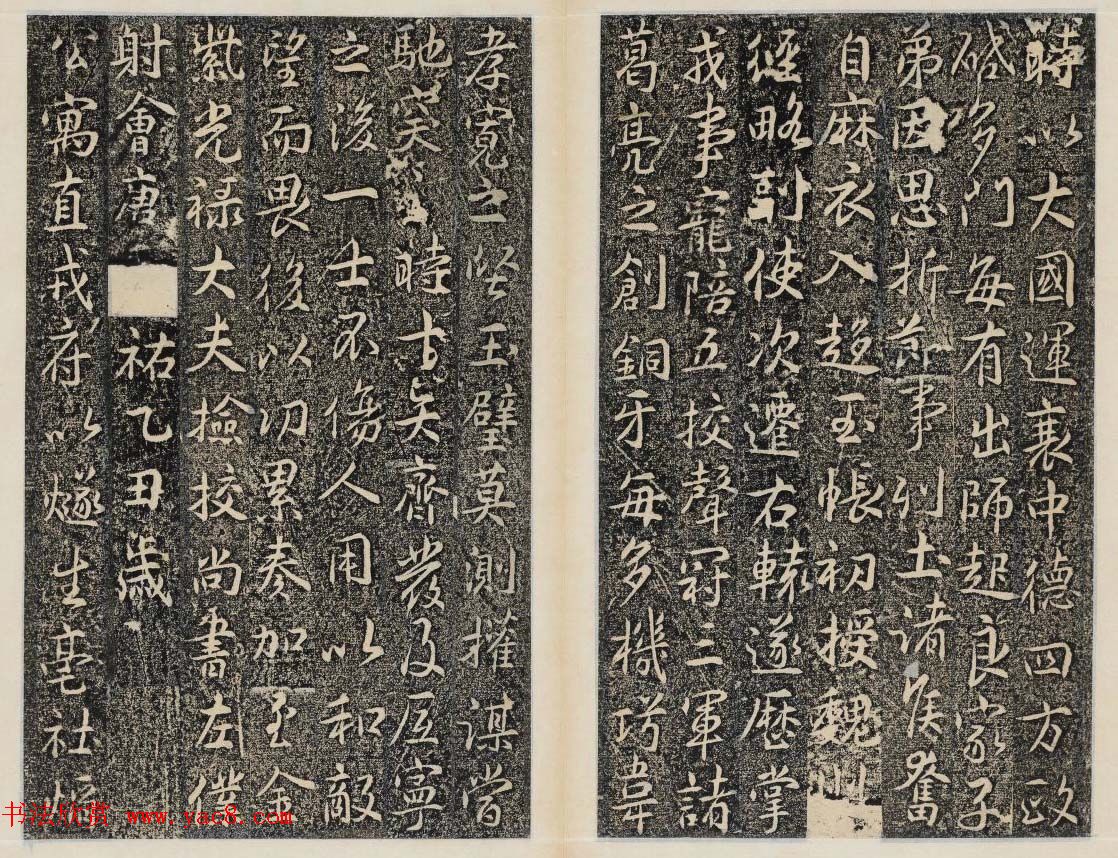 時以大國運衰中德四方政
多門每有出師起良家子
弟因思折節事列土諸侯奮
自麻衣入趨玉帳初授魏州
經略副使次遷右轅遂歷掌
戎事寵陪五校聲冠三軍諸
葛亮之創銅牙每多機巧韋
孝寬之堅玉壁莫測權謀當
馳突時古矣齊發及屆寧
之後一士不傷人用以和敵
望而畏後以功累奏加至金
紫光祿大夫撿挍尚書左僕
射會唐祐乙丑歲
公寓直戎府以燧生亳社
书法欣赏 www.yac8.com